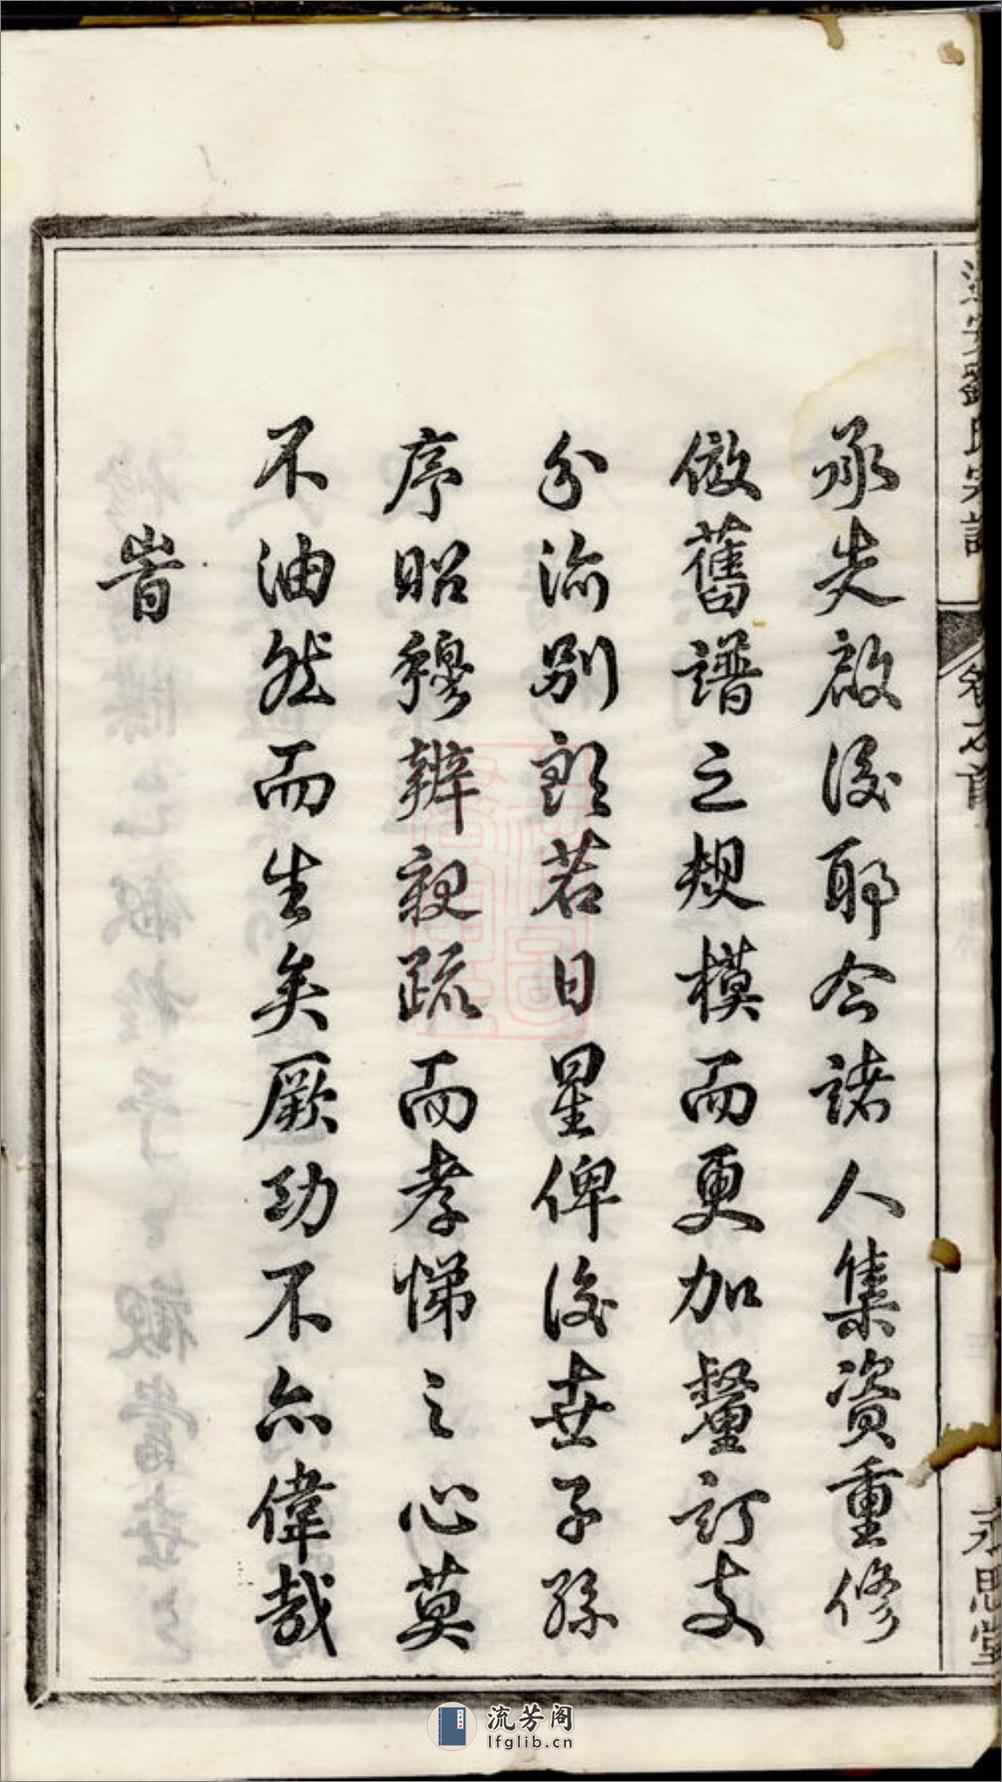 承先啟後耶今諸人集資重修
倣舊譜之規模而更加釐訂支
分流別朗若日星俾後世子孫
序昭穆辨親疏而孝悌之心莫
不油然而生矣厥功不亦偉哉
旹
劉氏宗譜
卷之首
永思堂
流芳阁
lfglib.cn